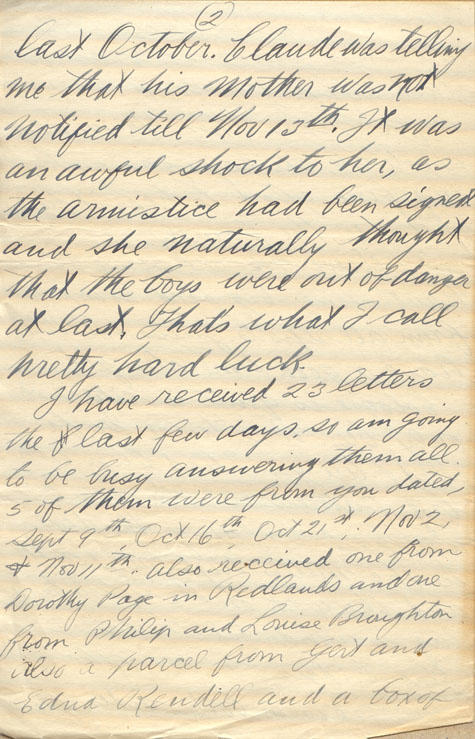 (2)
last October. Claude was telling
me that his Mother was not
notified till Nov 13th. It was
an awful shock to her, as
the armistice had been signed
and she naturally thought
that the boys were out of danger
at last. That's what I call
pretty hard luck.
I have received 23 letters
the last few days. so am going
to be busy answering them all.
5 of them were from you dated,
Sept 9th, Oct 16th, Oct 21st, Nov 2,
& Nov 11th. also received one from
Dorothy Page in Redlands and one
from Philip and Louise Broughton
also a parcel from Gert and
Edna Rendell and a box of